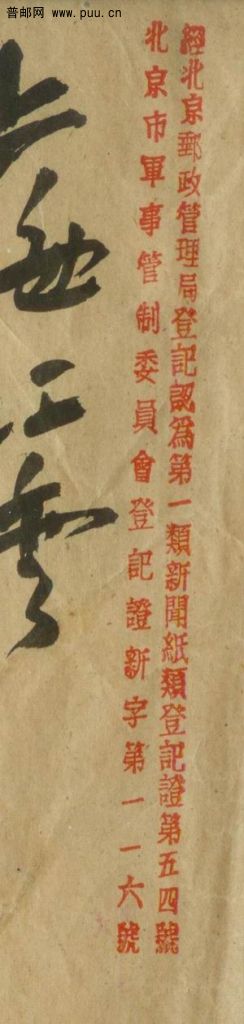 普邮网 www.puu.cn
經北京郵政管理局登記認為第一類新聞紙類登記證第五四號
北京市軍事管制委員會登記證新字第一一六號